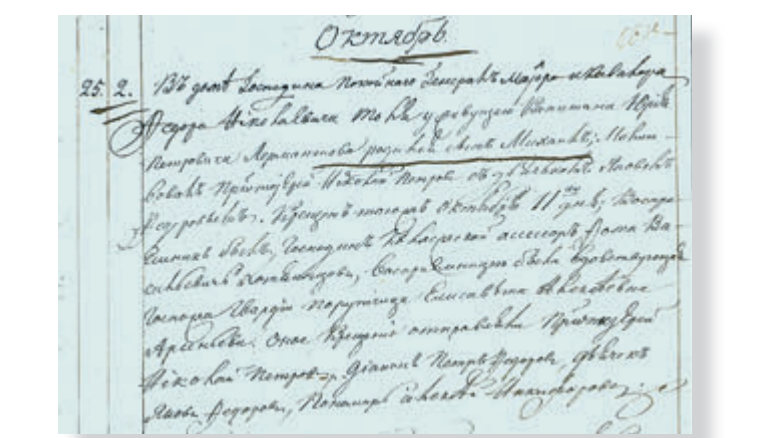 Октябрь.
25. 2. Въ доме Господина покойнаго Генералъ Маіора и Кавалера
Федора Николаевича Толя у живущего Капитана Юрія
Петровича Лермантова родился сынъ Михаилъ; Молит-
вовалъ Протоіерей Николай Петровъ съ дьячкомъ Яковомъ
Федоровымъ. Крещенъ тогожъ Октября 11 дня, Воспри-
емникъ былъ, Господинъ Коллежской ассесоръ Фома Ва-
сильевичъ Хотяинцовъ, Восприемницею была вдовствующая
Госпожа Гвардіи Порутчица Елисавета Алексѣевна
Арсеньева. Оное Крещеніе отправляли Протоіерей
Николай Петровъ, Діаконъ Петръ Федоровъ, дьячекъ
Яковъ Федоровъ, Пономарь Алексѣй Никифоровъ.